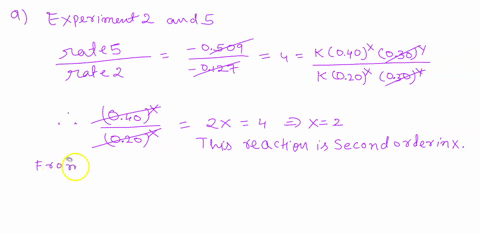 a) Experiment 2 and 5
rate 5 / rate 2 = -0.509 / -0.127 = 4 = K (0.40)^x (0.30)^y / K (0.20)^x (0.30)^y
∴ (0.40)^x / (0.20)^x = 2x = 4 ⇒ x = 2
This reaction is Second order in x.
From